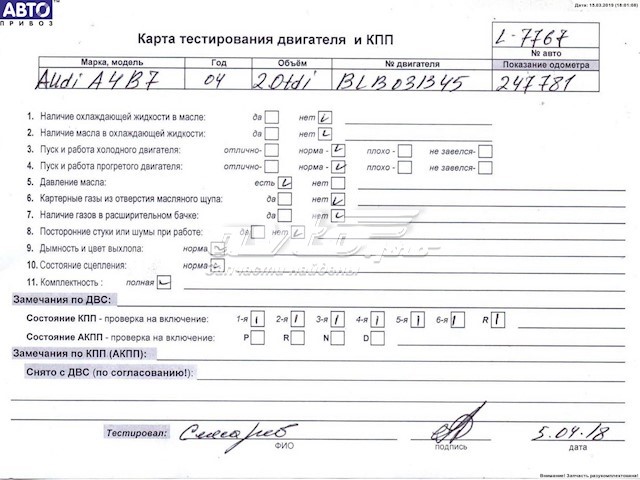 Дата: 15.03.2018 (18:01:08)
АВТО
ПРИВОЗ
Карта тестирования двигателя и КПП
L-7767
№ авто
Марка, модель Год Объём № двигателя Показание одометра
Audi A4B7 04 2.0tdi BLB031345 247781
1. Наличие охлаждающей жидкости в масле: да нет
2. Наличие масла в охлаждающей жидкости: да нет
3. Пуск и работа холодного двигателя: отлично- норма - плохо - не завелся-
4. Пуск и работа прогретого двигателя: отлично- норма - плохо - не завелся-
5. Давление масла: есть нет
6. Картерные газы из отверстия масляного щупа: да нет
7. Наличие газов в расширительном бачке: да нет
8. Посторонние стуки или шумы при работе: да нет
9. Дымность и цвет выхлопа: норма
10. Состояние сцепления: норма-
11. Комплектность : полная
Запчасти найдены!
Замечания по ДВС:
Состояние КПП - проверка на включение: 1-я 2-я 3-я 4-я 5-я 6-я R
Состояние АКПП - проверка на включение: P R N D
Замечания по КПП (АКПП):
Снято с ДВС (по согласованию!):
Тестировал: 5.04.18
ФИО подпись дата
Внимание! Запчасть разукомплектована!